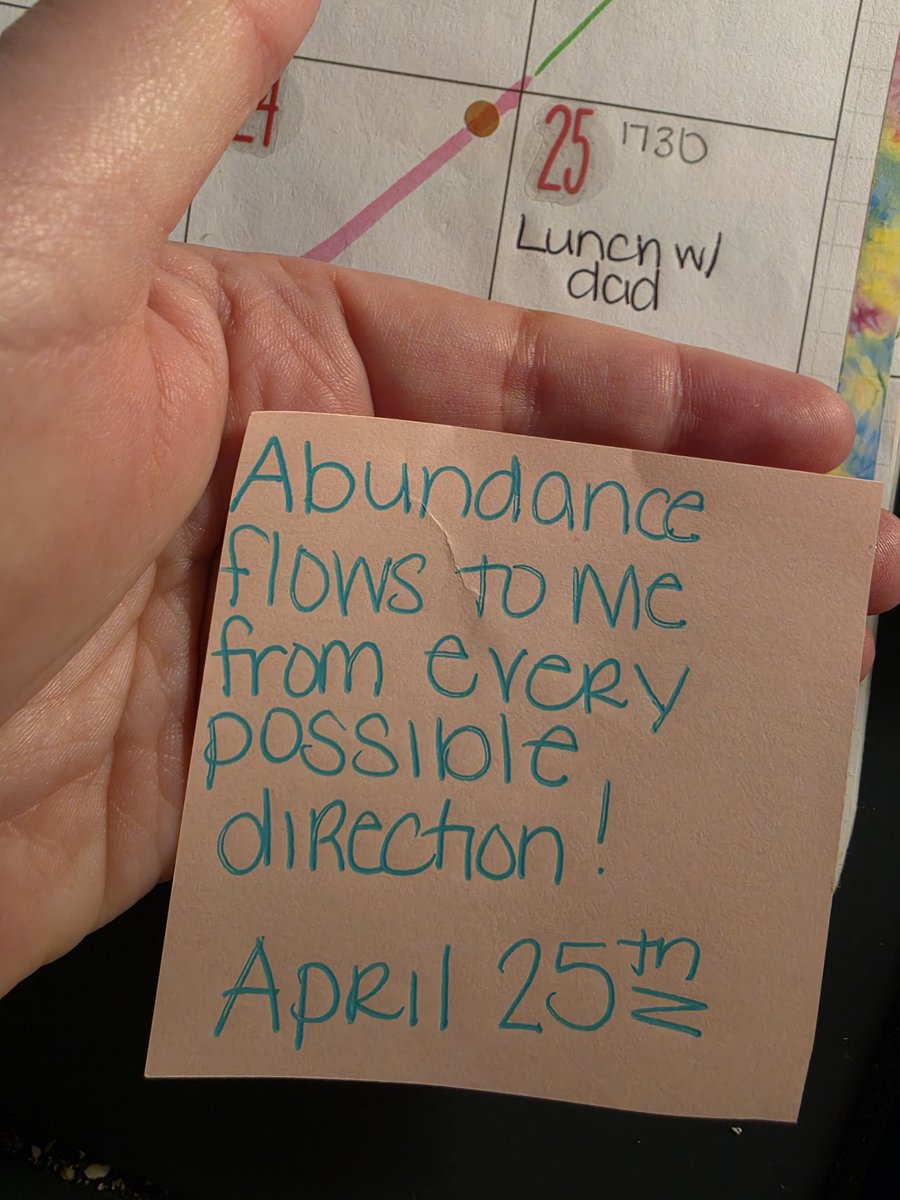 24
25 1730
Lunch w/
dad
Abundance
flows to me
from every
possible
direction!
April 25th